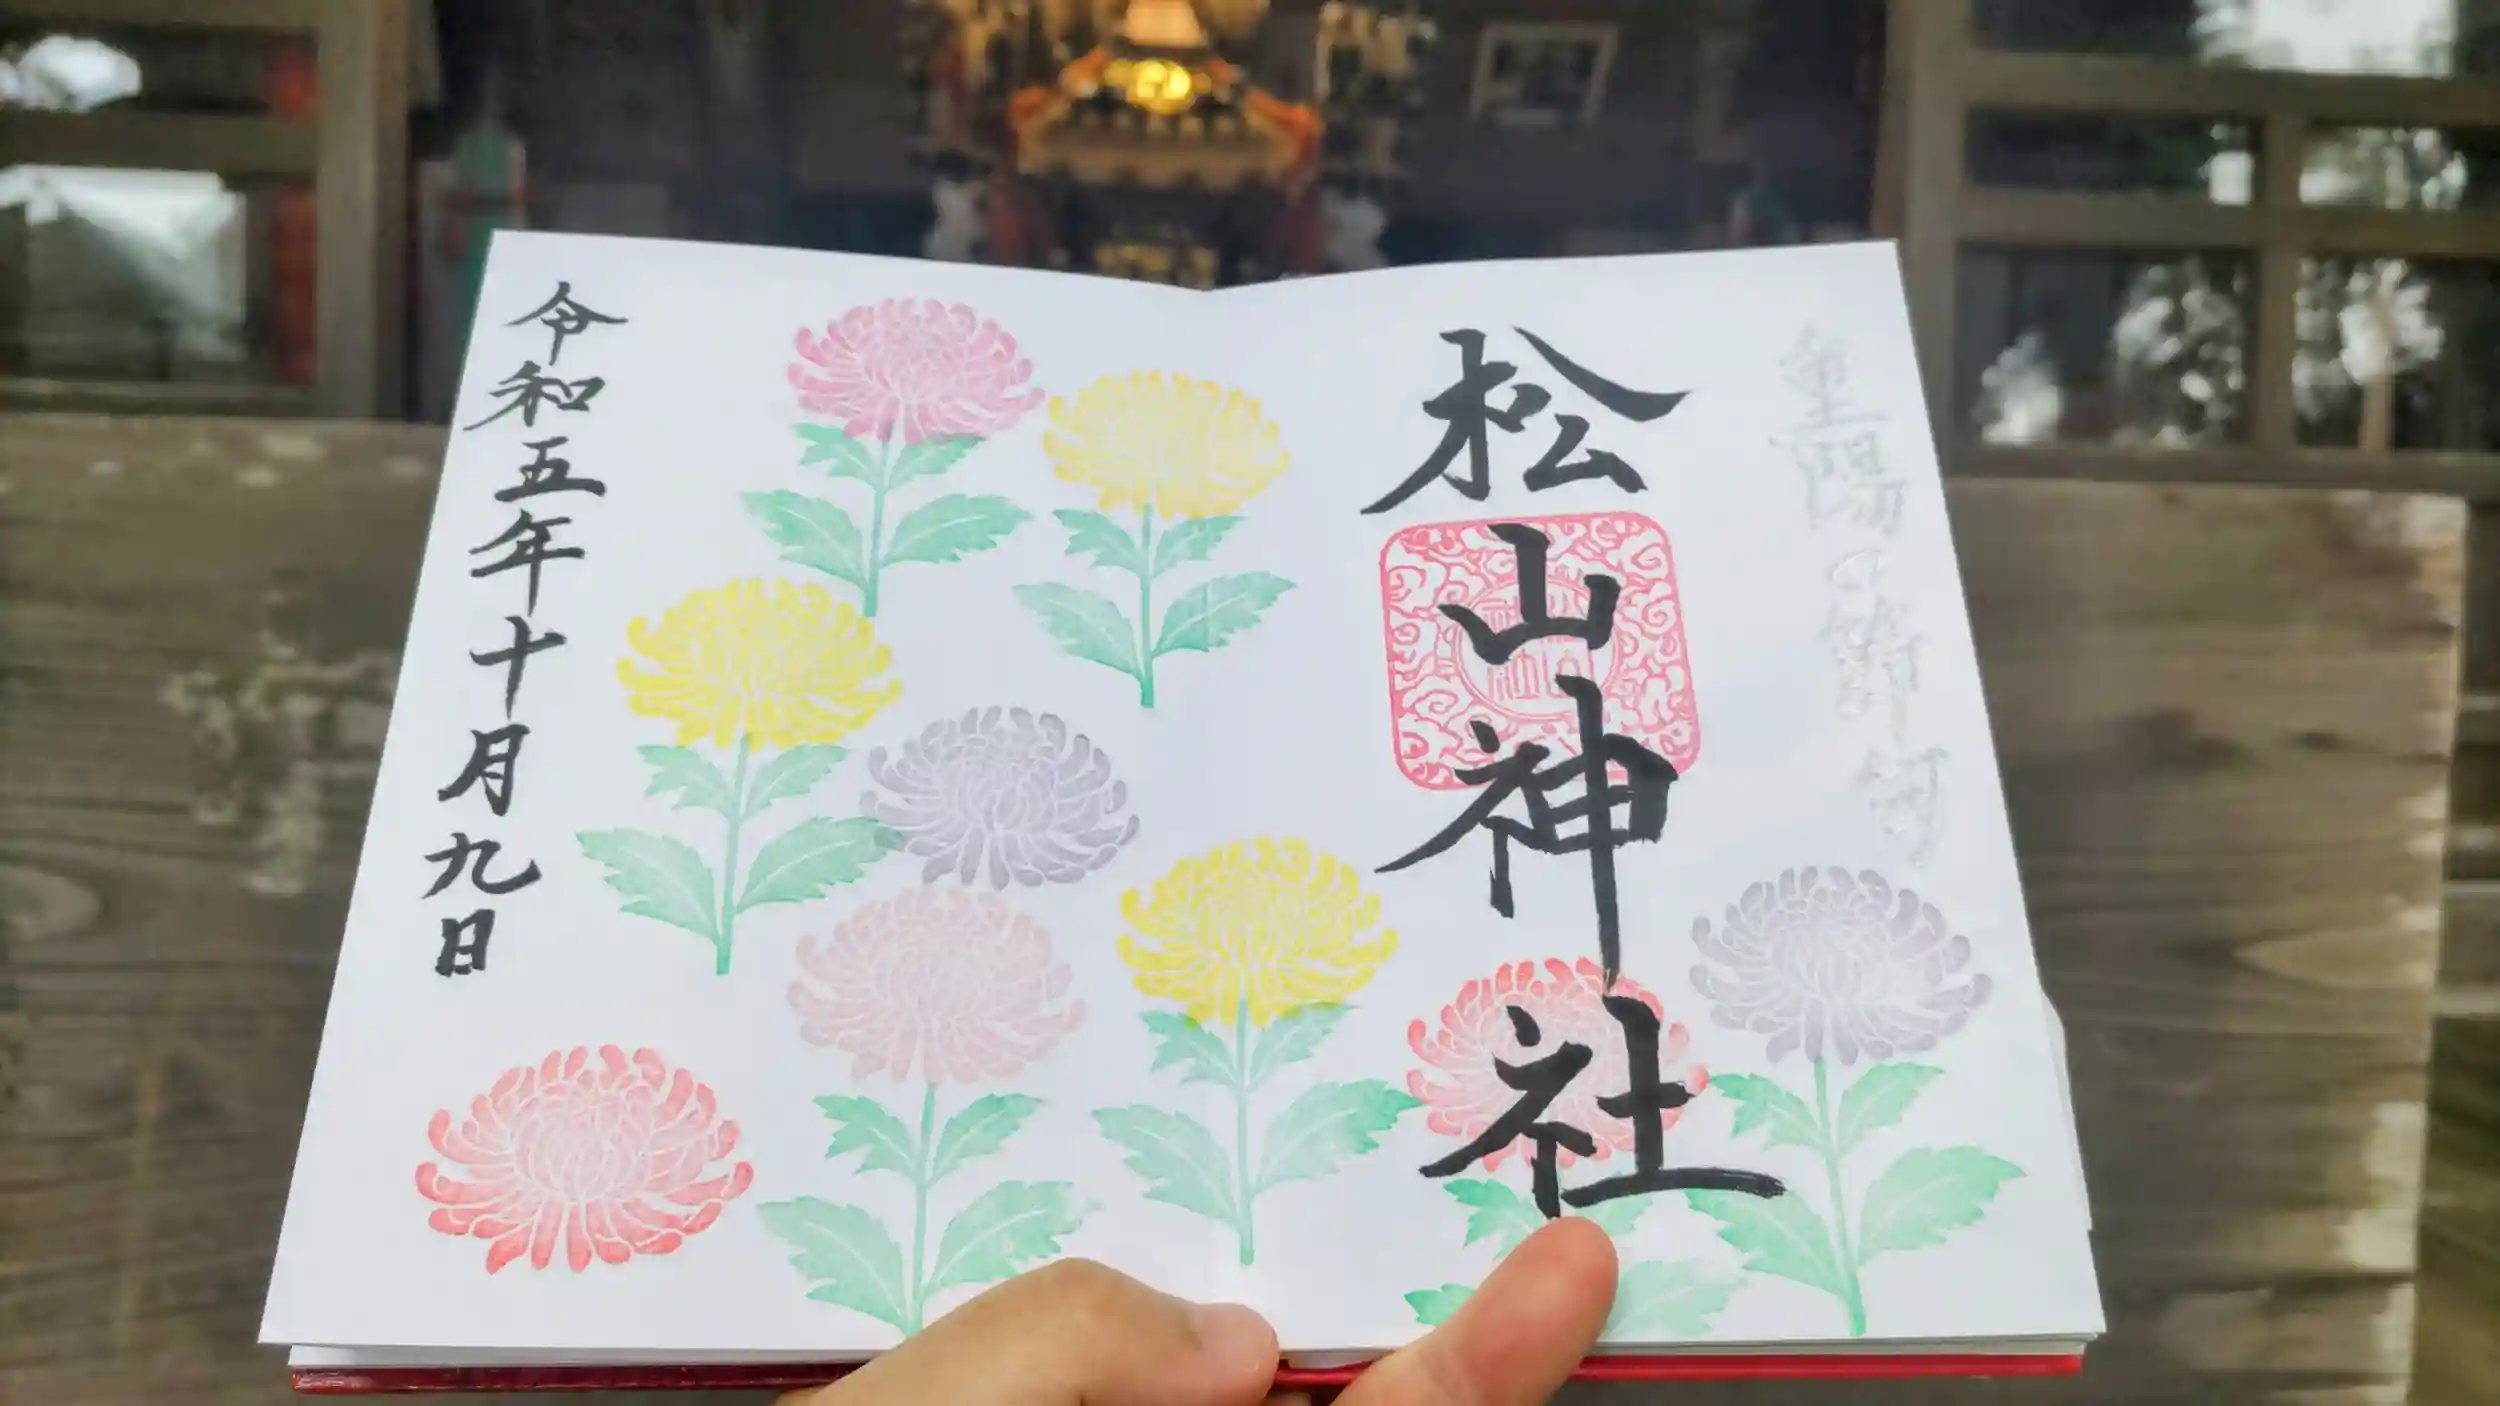 重陽の節句
松山神社
令和五年十月九日